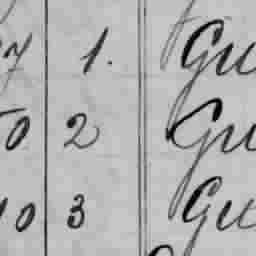 7 1. Gu
0 2 Gu
10 3 Gu